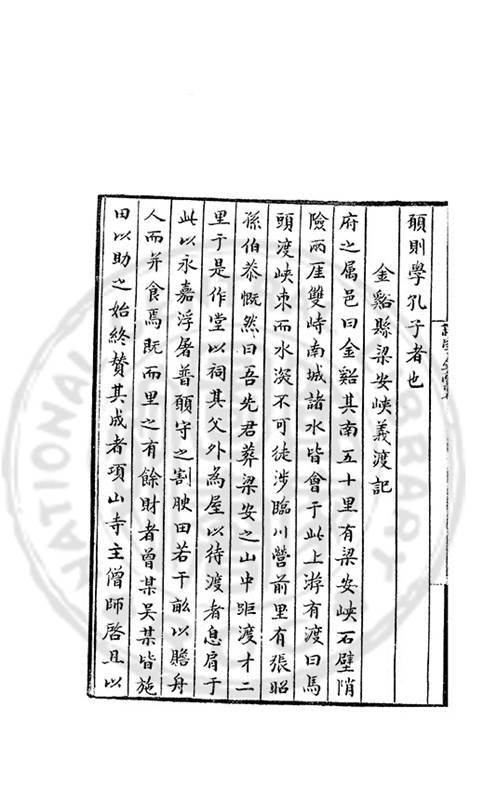 頋則學孔子者也
金谿縣梁安峽義渡記
府之属邑曰金谿其南五十里有梁安峽石壁陗
險兩厓雙峙南城諸水皆會于此上游有渡曰馬
頭渡峽束而水深不可徒涉臨川營前里有張昭
孫伯恭慨然曰吾先君葬梁安之山中距渡才二
里于是作堂以祠其父外為屋以待渡者息肩于
此以永嘉浮屠普願守之割腴田若干畝以贍舟
人而并食焉既而里之有餘財者曾某吴某皆施
田以助之始終賛其成者項山寺主僧師啓且以
NATIONAL LIBRARY